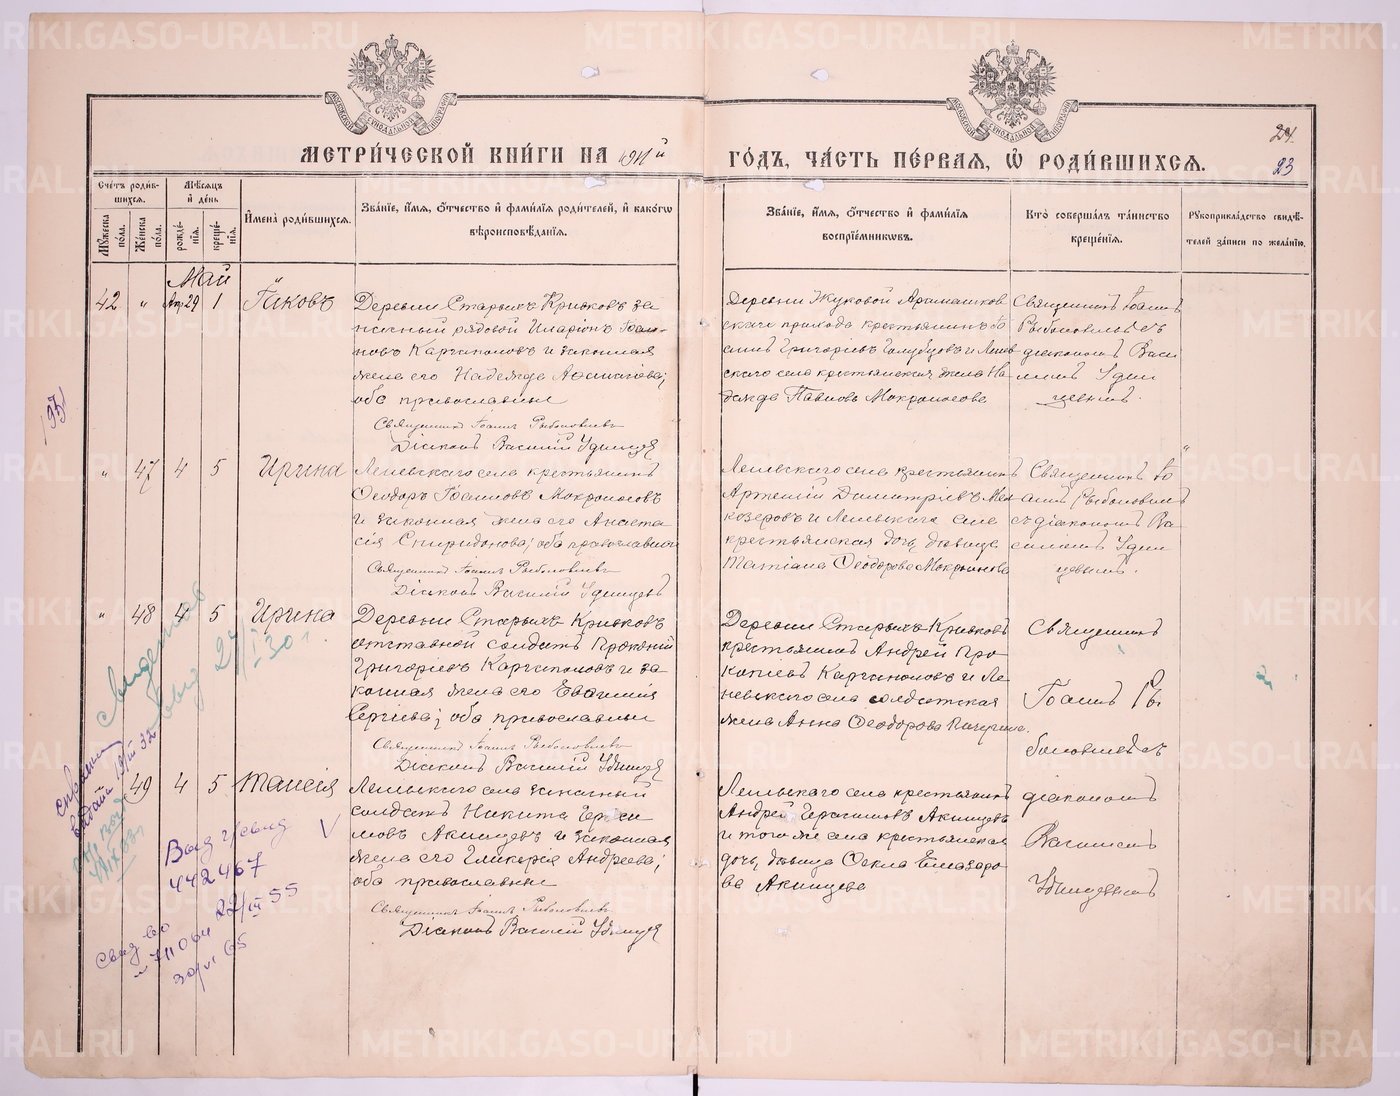 МЕТРИ́ЧЕСКОЙ КНИ́ГИ НА 1911й
ГО́ДЪ, ЧА́СТЬ ПЕ́РВАЯ, Ѡ҆ РОДИ́ВШИХСЯ.
24.
23
Сче́тъ роди́вшихся.
Му́жеска по́ла.
Же́нска по́ла.
Мѣ́сяцъ и҆ де́нь
рожде́нїя.
креще́нїя.
И҆мена̀ роди́вшихся.
Зва́нїе, и҆́мя, ѻ҆́тчество и҆ фами́лїя роди́телей, и҆ како́гѡ
вѣроисповѣ́данїя.
Зва́нїе, и҆́мя, ѻ҆́тчество и҆ фами́лїя
воспрїе́мникѡвъ.
Кто̀ соверша́лъ та́инство
креще́нїя.
Рꙋкоприкла́дство свидѣ́-
телей за́писи по жела́нїю.
Май
42 " Апр 29 1 Іаковъ
Деревни Старыхъ Крюковъ за-
пасный рядовой Иларіонъ Іоан-
новъ Каргаполовъ и законная
жена его Надежда
оба православные
Священникъ Іоаннъ Рыболовлевъ
Діаконъ Василій Удинцев
Деревни Жуковой Арамашков-
скаго прихода крестьянинъ Іо-
аннъ Григоріевъ Голубцовъ и Ленев-
скаго села крестьянская жена На-
дежда Павлова Мокроносова
Священникъ Іоаннъ
Рыболовлевъ съ
діакономъ Васи
ліемъ Удин
цевымъ.
" 47 4 5 Ирина
Леневскаго села крестьянинъ
Ѳеодоръ Іоанновъ Мокроносовъ
и законная жена его Анаста-
сія Спиридонова; оба православные
Священникъ Іоаннъ Рыболовлевъ
Діаконъ Василій Удинцевъ
Леневскаго села крестьянинъ
Артемій Димитріевъ Мел-
козеровъ и Леневскаго села
крестьянская дочь, дѣвица
Татіана Ѳеодорова Мокроносова
Священникъ Іо
аннъ Рыболовлевъ
съ діакономъ Ва-
силіемъ Удин
цевымъ.
" 48 4 5 Ирина
Деревни Старыхъ Крюковъ
отставной солдатъ Прокопій
Григоріевъ Каргаполовъ и за-
конная жена его Евгенія
Сергіева; оба православные
Священникъ Іоаннъ Рыболовлевъ
Діаконъ Василій Удинцев
Деревни Старыхъ Крюковъ
крестьянинъ Андрей Про-
копіевъ Каргаполовъ и Ле-
невскаго села солдатская
жена Анна Ѳеодорова
Священникъ
Іоаннъ Ры
боловлевъ съ
49 4 5 Таисія
Леневскаго села запасный
солдатъ Никита Гераси
мовъ Акишевъ и законная
жена его Гликерія Андреева;
оба православные
Священникъ Іоаннъ Рыболовлевъ
Діаконъ Василій Удинцев
Леневскаго села крестьянинъ
Андрей Герасимовъ Акишевъ
и того же села крестьянская
дочь, дѣвица Ѳекла Елеазаро-
ва Акишева
діакономъ
Василіемъ
Удинцевымъ
V
442467
22/III 55
Свид-во
30/VI 65